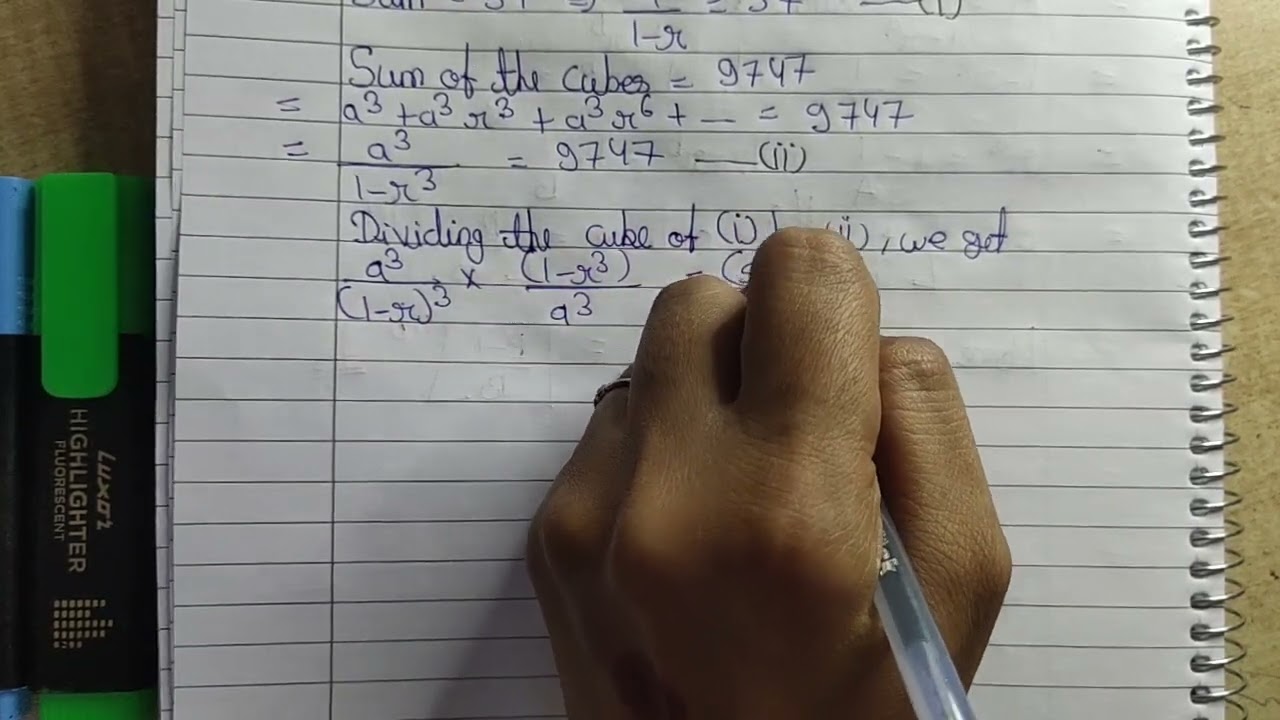 1-r
Sum of the cubes = 9747
= a³ + a³r³ + a³r⁶ + — = 9747
= a³/1-r³ = 9747 —(ii)
Dividing the cube of (i) (ii), we get
a³/(1-r)³ × (1-r³)/a³ = (
LUXOR
HIGHLIGHTER
FLUORESCENT